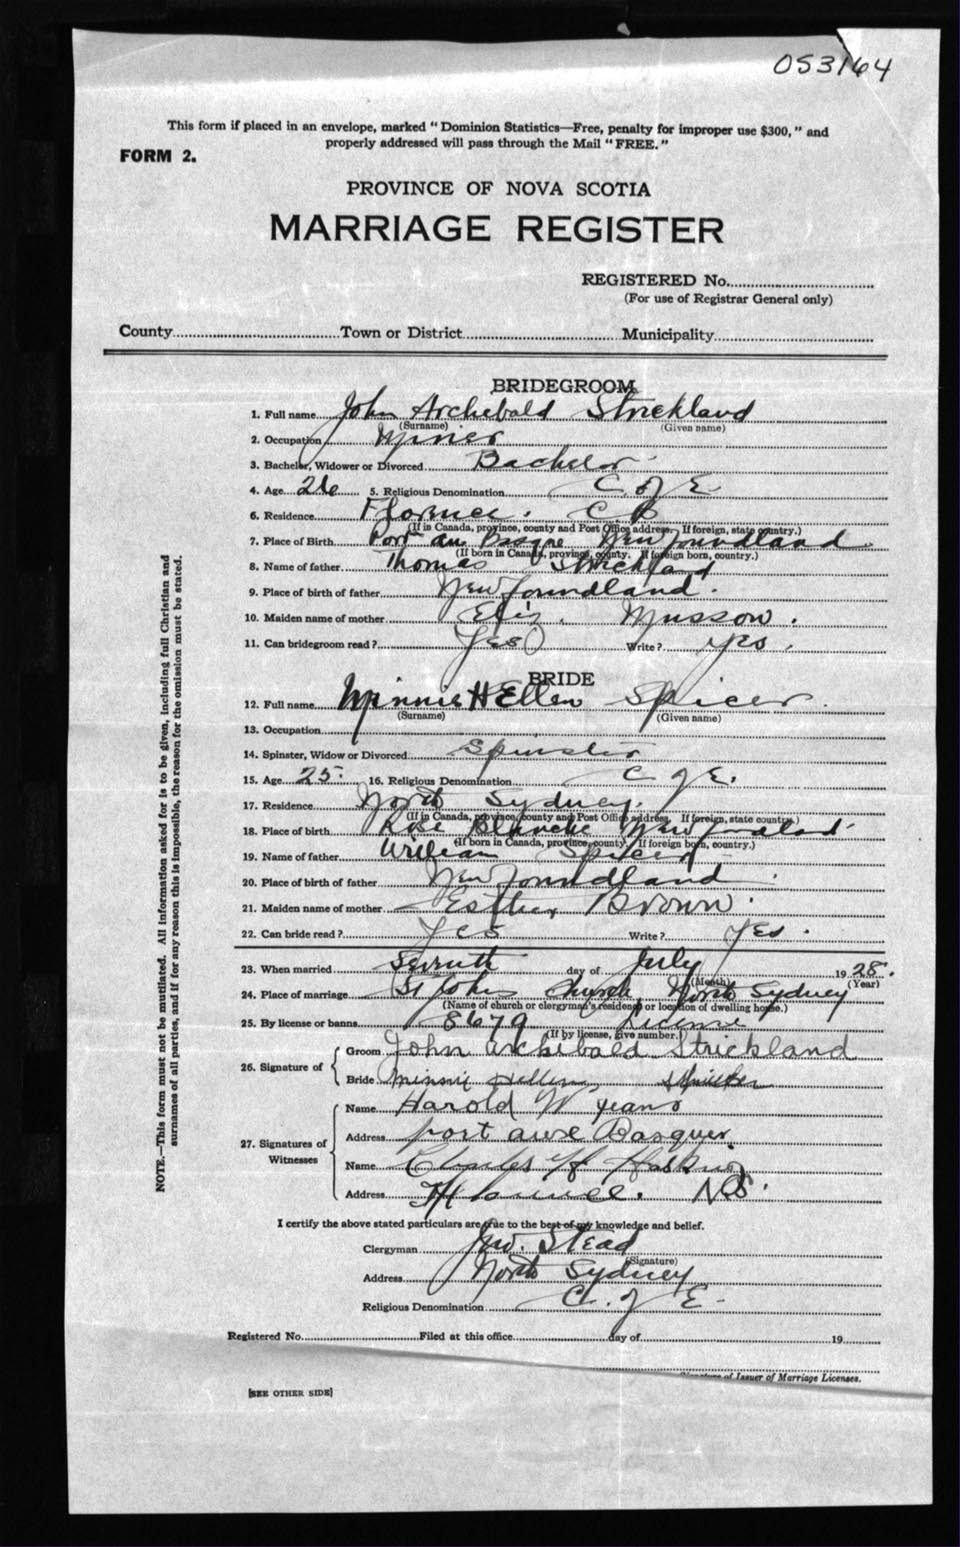 053164
This form if placed in an envelope, marked "Dominion Statistics—Free, penalty for improper use $300," and
properly addressed will pass through the Mail "FREE."
FORM 2.
PROVINCE OF NOVA SCOTIA
MARRIAGE REGISTER
REGISTERED No.
(For use of Registrar General only)
County Town or District Municipality
BRIDEGROOM
1. Full name John Archebald Strickland
(Surname) (Given name)
2. Occupation Miner
3. Bachelor, Widower or Divorced Bachelor
4. Age 26 5. Religious Denomination C. of E.
6. Residence Florence. C B
(If in Canada, province, county and Post Office address. If foreign, state country.)
7. Place of Birth Port au Basque Newfoundland
(If born in Canada, province, county. If foreign born, country.)
8. Name of father Thomas Strickland
9. Place of birth of father Newfoundland.
10. Maiden name of mother Eliz. Musson.
11. Can bridegroom read? Yes Write? yes.
BRIDE
12. Full name Minnie H Ellen Spicer.
(Surname) (Given name)
13. Occupation
14. Spinster, Widow or Divorced Spinster
15. Age 25. 16. Religious Denomination C of E.
17. Residence North Sydney.
(If in Canada, province, county and Post Office address. If foreign, state country.)
18. Place of birth Rose Blanche Newfoundland.
(If born in Canada, province, county. If foreign born, country.)
19. Name of father William Spicer
20. Place of birth of father Newfoundland.
21. Maiden name of mother Esther Brown.
22. Can bride read? Yes Write? Yes.
23. When married day of July 1928.
(Month) (Year)
24. Place of marriage St Johns Church, North Sydney
(Name of church or clergyman's residence or location of dwelling house.)
25. By license or banns 8679 License
(If by license, give number.)
26. Signature of
Groom John Archibald Strickland
Bride Minnie
27. Signatures of
Witnesses
Name Harold W
Address port
Name Charles
Address N S.
I certify the above stated particulars are true to the best of my knowledge and belief.
Clergyman Stead
(Signature)
Address North Sydney
Religious Denomination C. of E.
Registered No. Filed at this office day of 19
Signature of Issuer of Marriage Licenses.
[SEE OTHER SIDE]
NOTE.—This form must not be mutilated. All information asked for is to be given, including full Christian and
surnames of all parties, and if for any reason this is impossible, the reason for the omission must be stated.